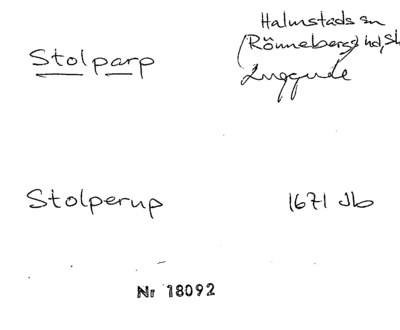 Halmstads sn
Stolparp
(Rönnebergs hd, Sk
Luggude
Stolperup 1671 Jb
Nr 18092